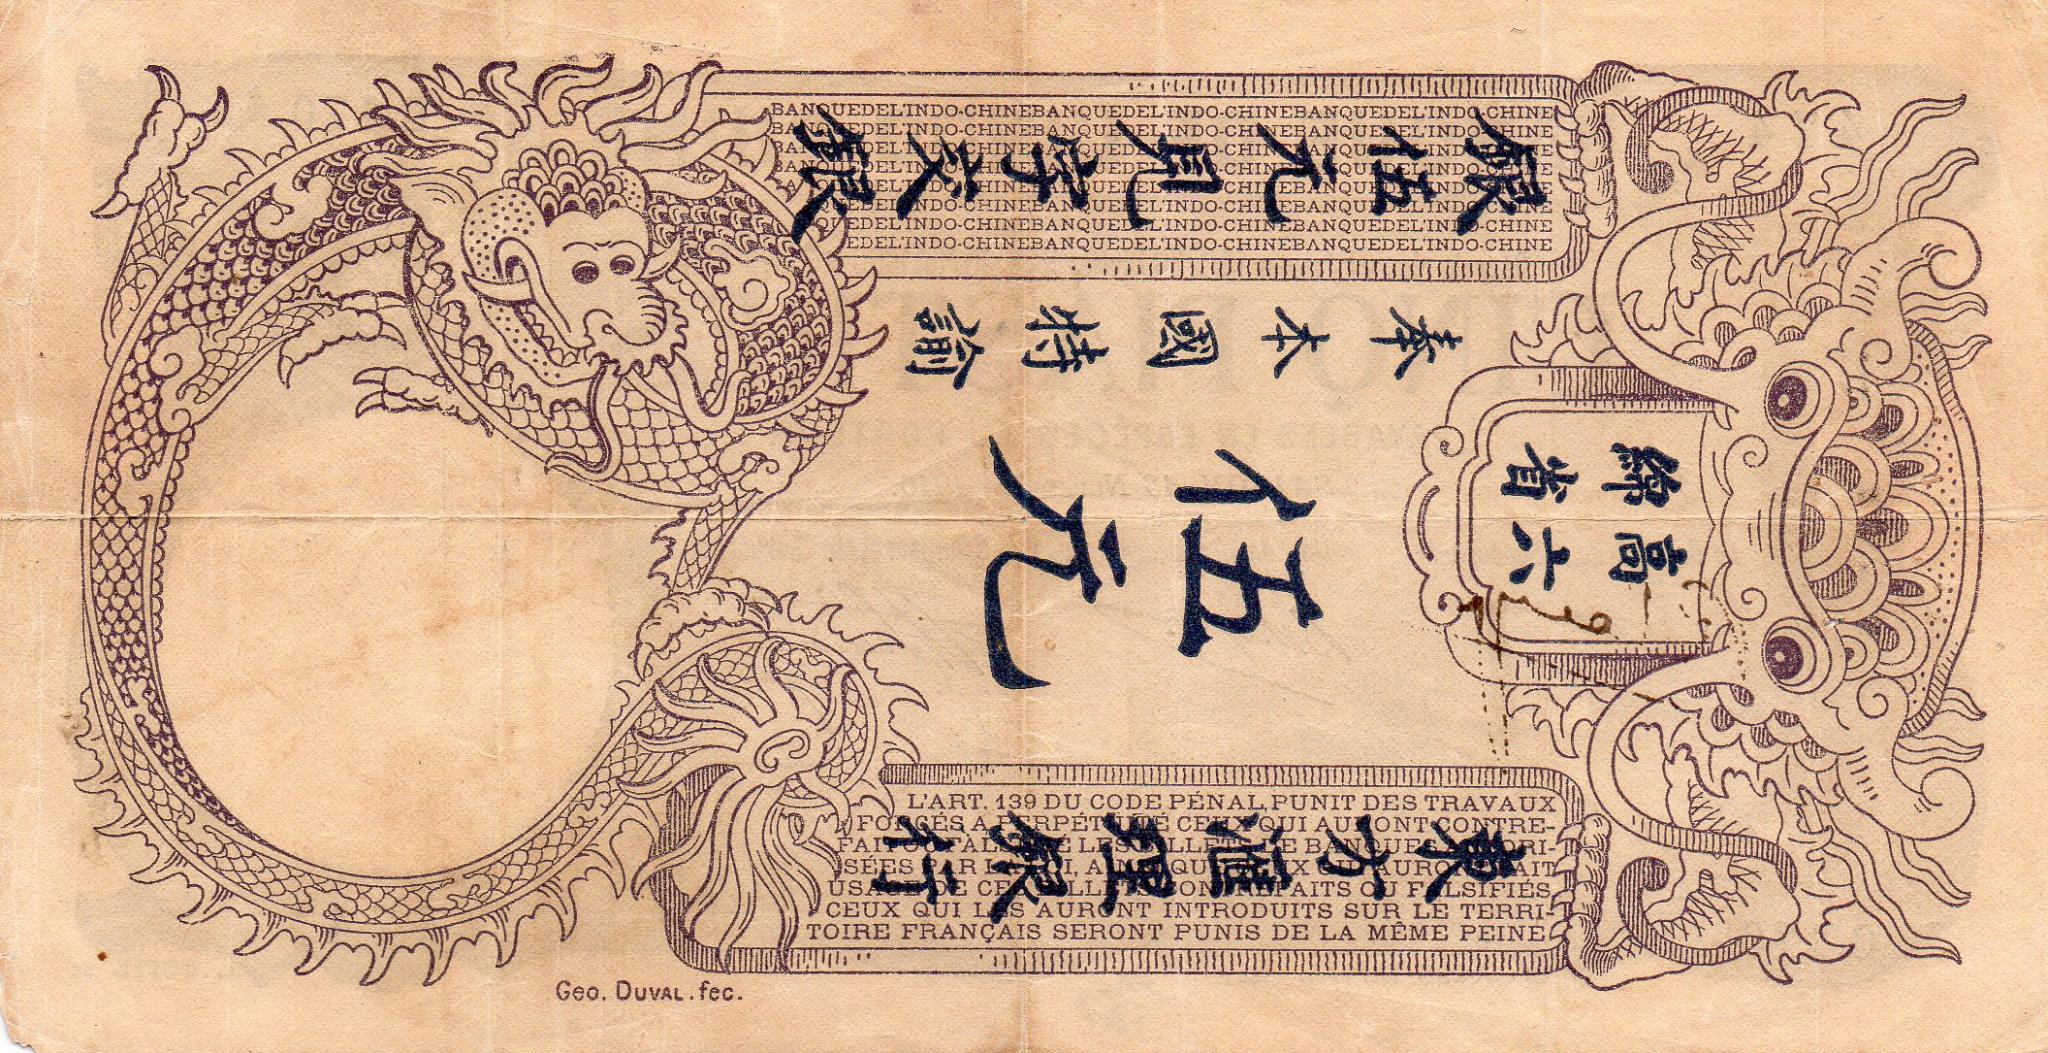 BANQUEDEL'INDO-CHINEBANQUEDEL'INDO-CHINEBANQUEDEL'INDO-CHINE
BANQUEDEL'INDO-CHINEBANQUEDEL'INDO-CHINEBANQUEDEL'INDO-CHINE
BANQUEDEL'INDO-CHINEBANQUEDEL'INDO-CHINEBANQUEDEL'INDO-CHINE
BANQUEDEL'INDO-CHINEBANQUEDEL'INDO-CHINEBANQUEDEL'INDO-CHINE
EDEL'INDO-CHINEBANQUEDEL'INDO-CHINEBANQUEDEL'INDO-CHINE
EDEL'INDO-CHINEBANQUEDEL'INDO-CHINEBANQUEDEL'INDO-CHINE
EDEL'INDO-CHINEBANQUEDEL'INDO-CHINEBANQUEDEL'INDO-CHINE
EDEL'INDO-CHINEBANQUEDEL'INDO-CHINEBANQUEDEL'INDO-CHINE
高綿
六省
東方滙理銀行
伍元
奉本國特諭
銀伍元見字交銀
L'ART. 139 DU CODE PÉNAL, PUNIT DES TRAVAUX
FORCÉS A PERPÉTUITÉ CEUX QUI AURONT CONTRE-
FAIT OU FALSIFIÉ LES BILLETS DE BANQUES AUTORI-
SÉES PAR LA LOI, AINSI QUE CEUX QUI AURONT FAIT
USAGE DE CES BILLETS CONTREFAITS OU FALSIFIÉS.
CEUX QUI LES AURONT INTRODUITS SUR LE TERRI-
TOIRE FRANÇAIS SERONT PUNIS DE LA MÊME PEINE.
Geo. DUVAL.fec.